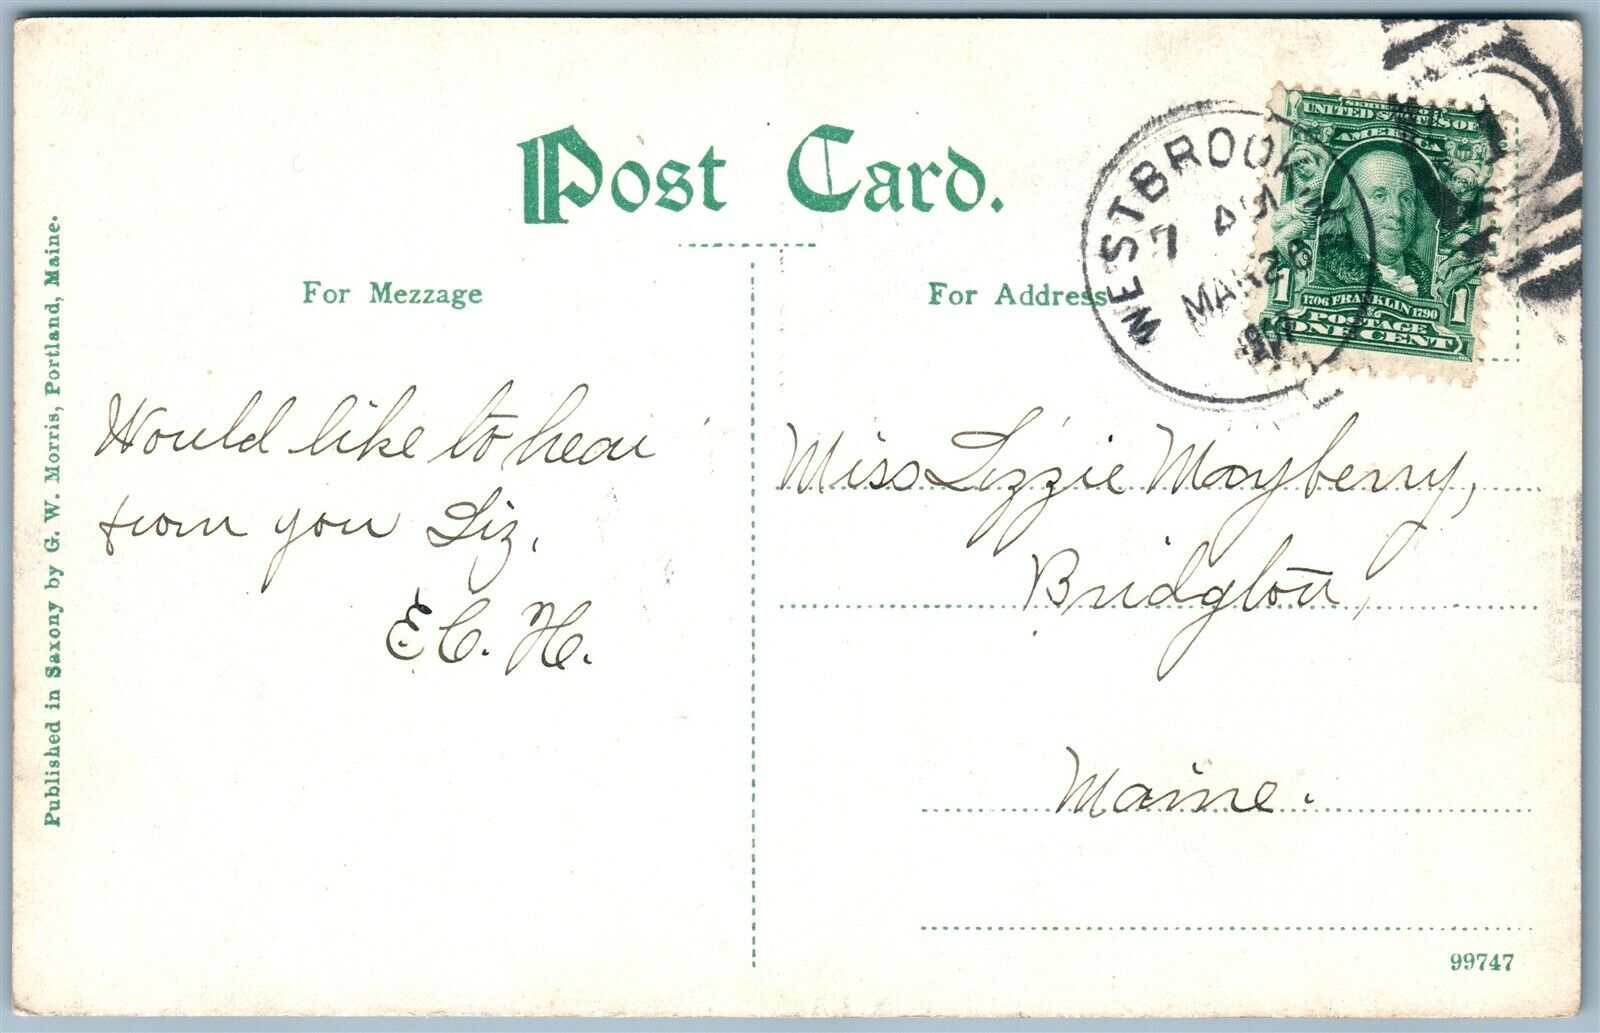 Post Card.
For Mezzage
For Address
Published in Saxony by G. W. Morris, Portland, Maine.
WESTBROOK
7 AM
MAR 28
SERIES OF
UNITED STATES OF
AMERICA
1706 FRANKLIN 1790
1 POSTAGE 1
ONE CENT
Would like to hear
from you Liz.
E. C. H.
Miss Lizzie Mayberry,
Bridgton,
Maine.
99747